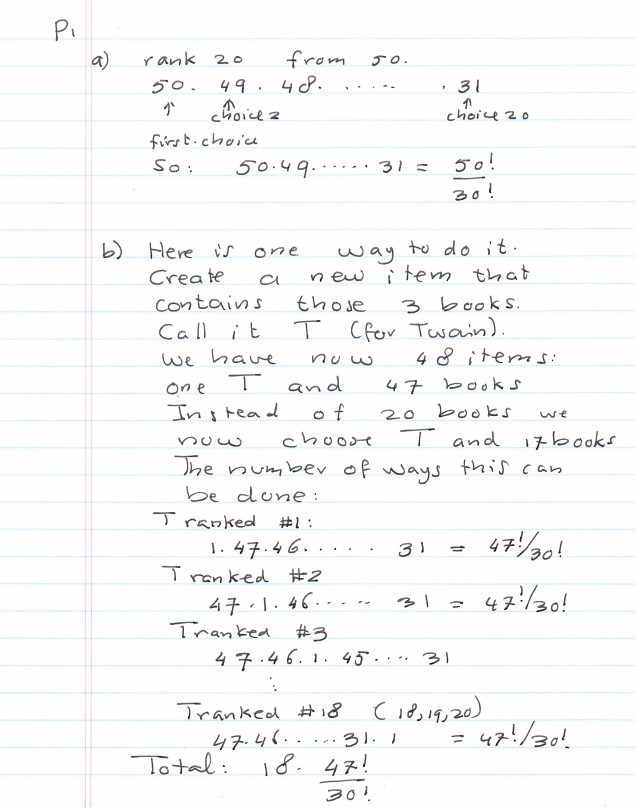 P1
a) rank 20 from 50.
50. 49. 48. ..... . 31
↑ ↑ choice 2 ↑ choice 20
first choice
So: 50.49. ..... 31 = 50!/30!
b) Here is one way to do it.
Create a new item that
contains those 3 books.
Call it T (for Twain).
We have now 48 items:
one T and 47 books
Instead of 20 books we
now choose T and 17 books
The number of ways this can
be done:
T ranked #1:
1. 47.46. .... . 31 = 47!/30!
T ranked #2
47.1.46. .... 31 = 47!/30!
T ranked #3
47.46.1.45. ... 31
⋮
T ranked #18 (18,19,20)
47.46. ..... 31. 1 = 47!/30!
Total: 18. 47!/30!